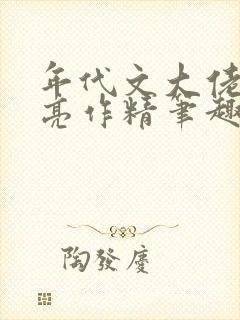 年代文大佬
亮作精筆趣
陶發慶